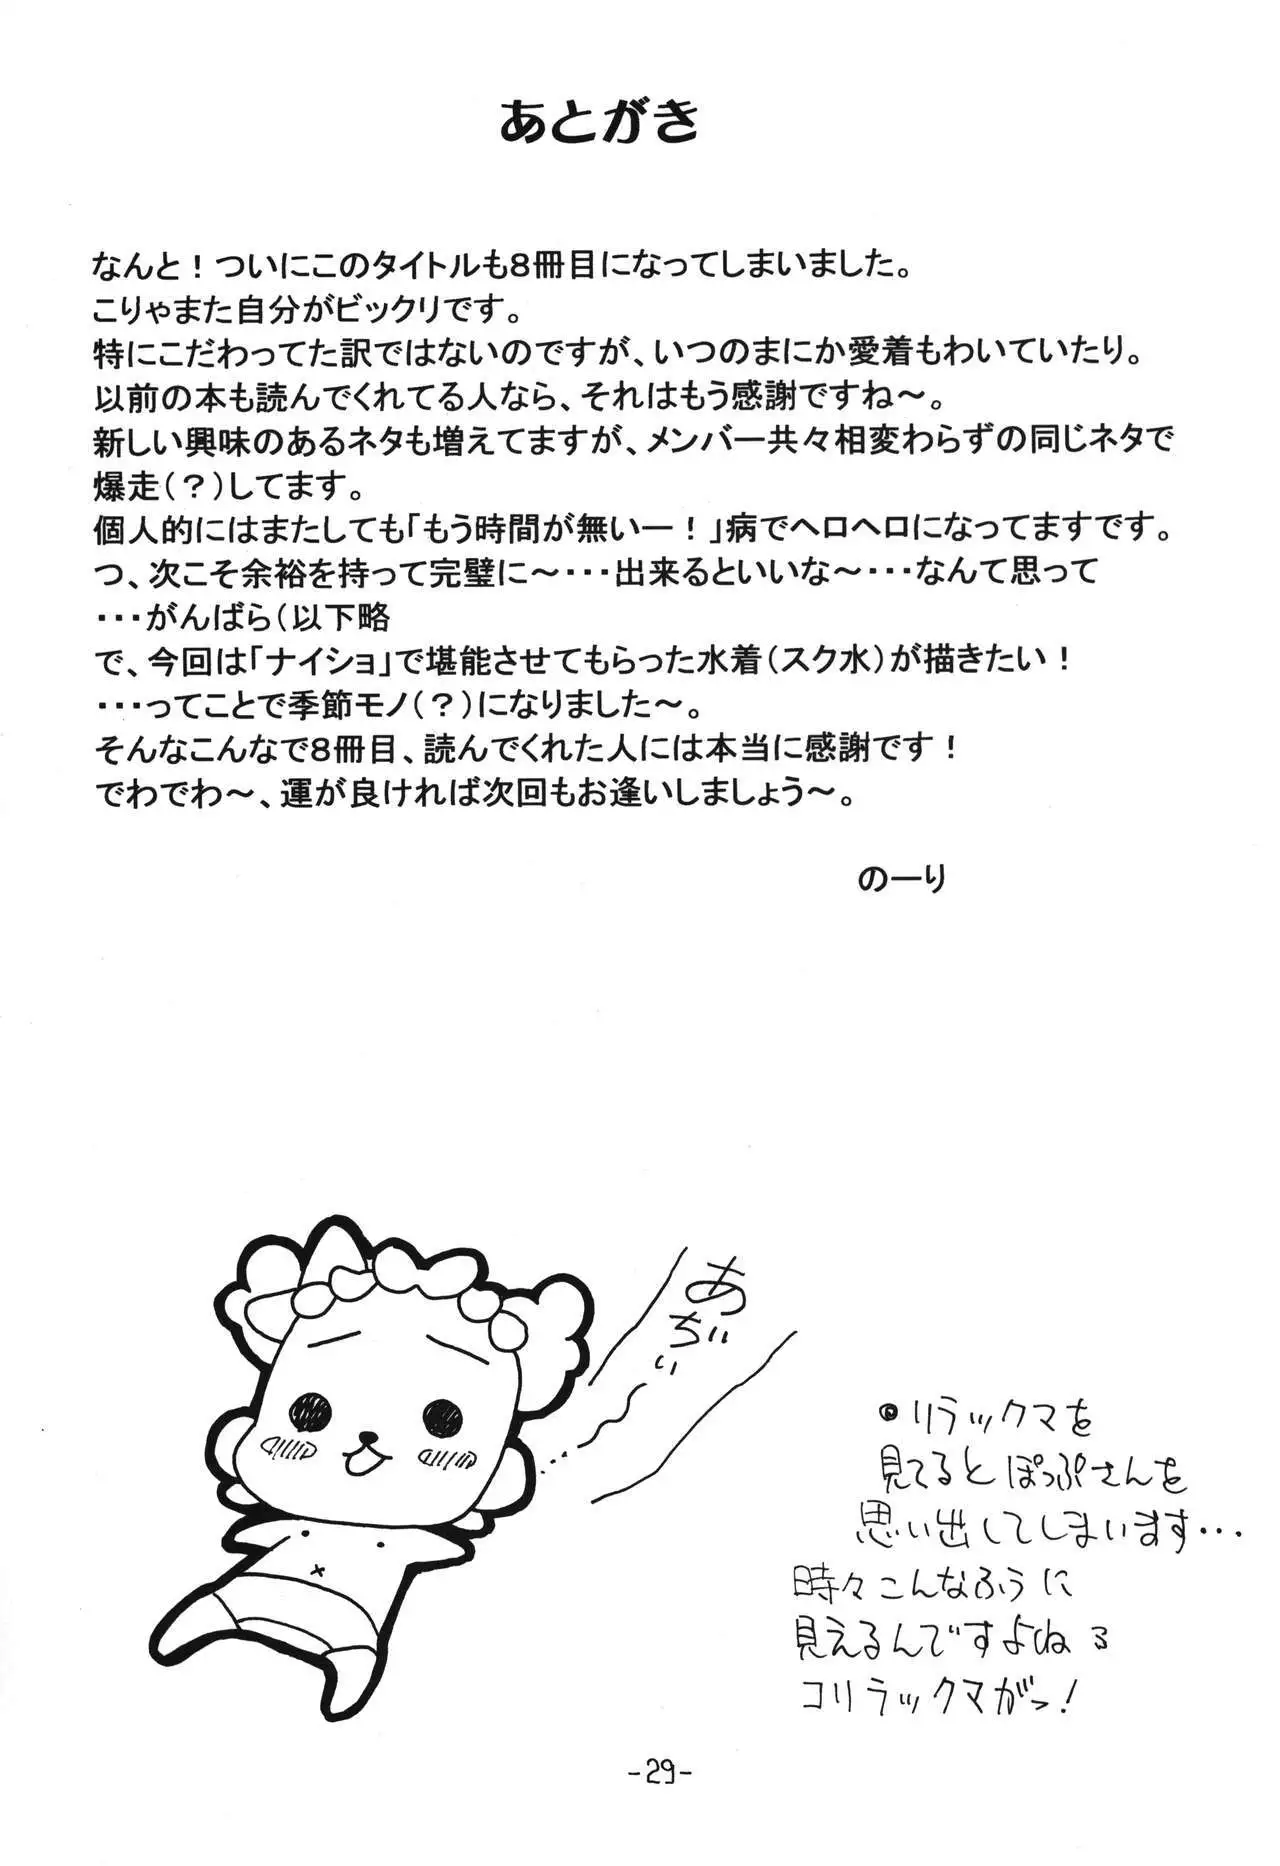 あとがき
なんと！ついにこのタイトルも８冊目になってしまいました。
こりゃまた自分がビックリです。
特にこだわってた訳ではないのですが、いつのまにか愛着もわいていたり。
以前の本も読んでくれてる人なら、それはもう感謝ですね～。
新しい興味のあるネタも増えてますが、メンバー共々相変わらずの同じネタで
爆走（？）してます。
個人的にはまたしても「もう時間が無いー！」病でヘロヘロになってますです。
つ、次こそ余裕を持って完璧に～・・・出来るといいな～・・・なんて思って
・・・がんばら（以下略
で、今回は「ナイショ」で堪能させてもらった水着（スク水）が描きたい！
・・・ってことで季節モノ（？）になりました～。
そんなこんなで８冊目、読んでくれた人には本当に感謝です！
でわでわ～、運が良ければ次回もお逢いしましょう～。
のーり
あぢぃぃ～…
◎リラックマを
見てるとぽっぷさんを
思い出してしまいます…
時々こんなふうに
見えるんですよねぇ
コリラックマがっ！
-29-